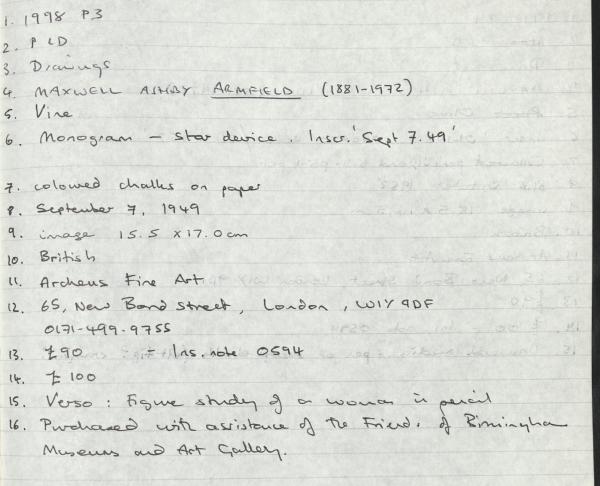 1. 1998 P3
2. P LD
3. Drawings
4. MAXWELL ASHBY ARMFIELD (1881-1972)
5. Vine
6. Monogram - star device. Inscr. 'Sept 7. 49'
7. coloured chalks on paper
8. September 7, 1949
9. image 15.5 x 17.0 cm
10. British
11. Archeus Fine Art
12. 65, New Bond Street, London, W1Y 9DF
0171-499-9755
13. £90 Ins. note 0594
14. £100
15. Verso : Figure study of a woman in pencil
16. Purchased with assistance of the Friends of Birmingham
Museums and Art Gallery.